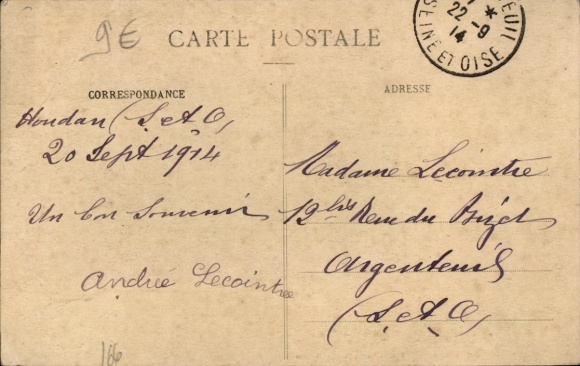 9€
CARTE POSTALE
EUIL
22-9
14
SEINE ET OISE
CORRESPONDANCE
ADRESSE
Houdan (S. et O,
20 Sept 1914
Un bon Souvenir
André Lecointre
Madame Lecointre
12 bis Rue du
Argenteuil
(S. et O,